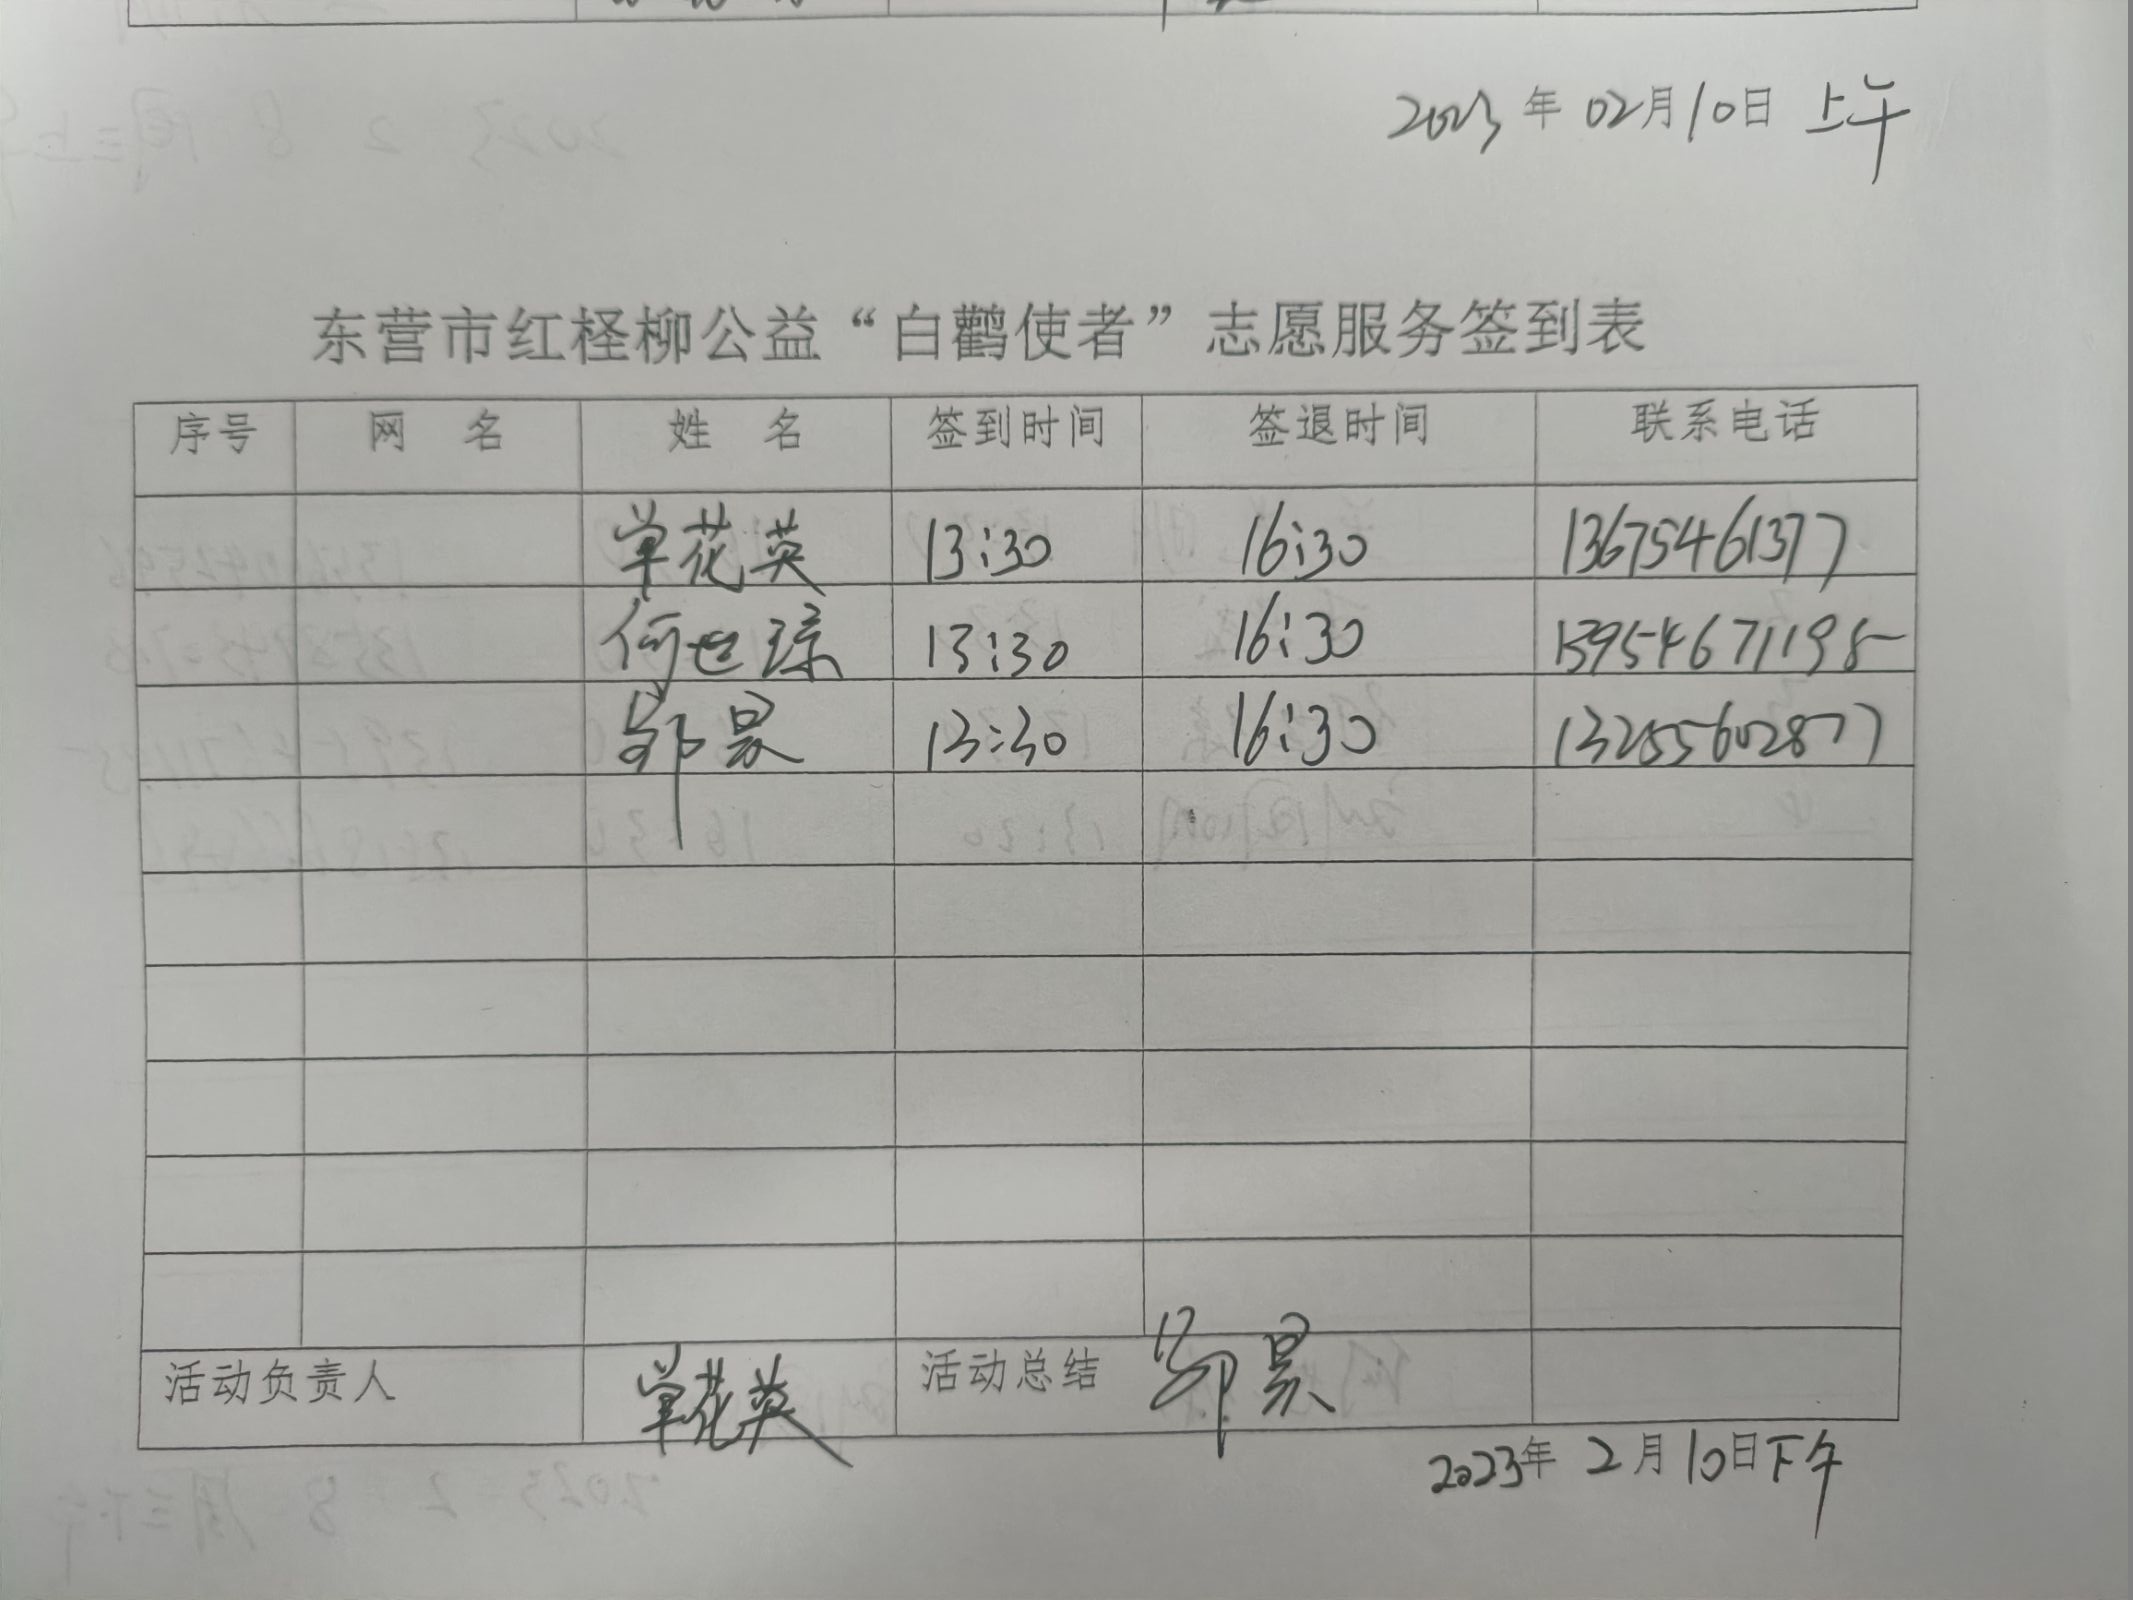 2023年02月10日 上午
东营市红柽柳公益“白鹳使者”志愿服务签到表
序号 网 名 姓 名 签到时间 签退时间 联系电话
单花英 13:30 16:30 13675461377
何世琼 13:30 16:30 13954671195
邹昊 13:30 16:30 13255602877
活动负责人 单花英 活动总结 邹昊
2023年 2月 10日下午